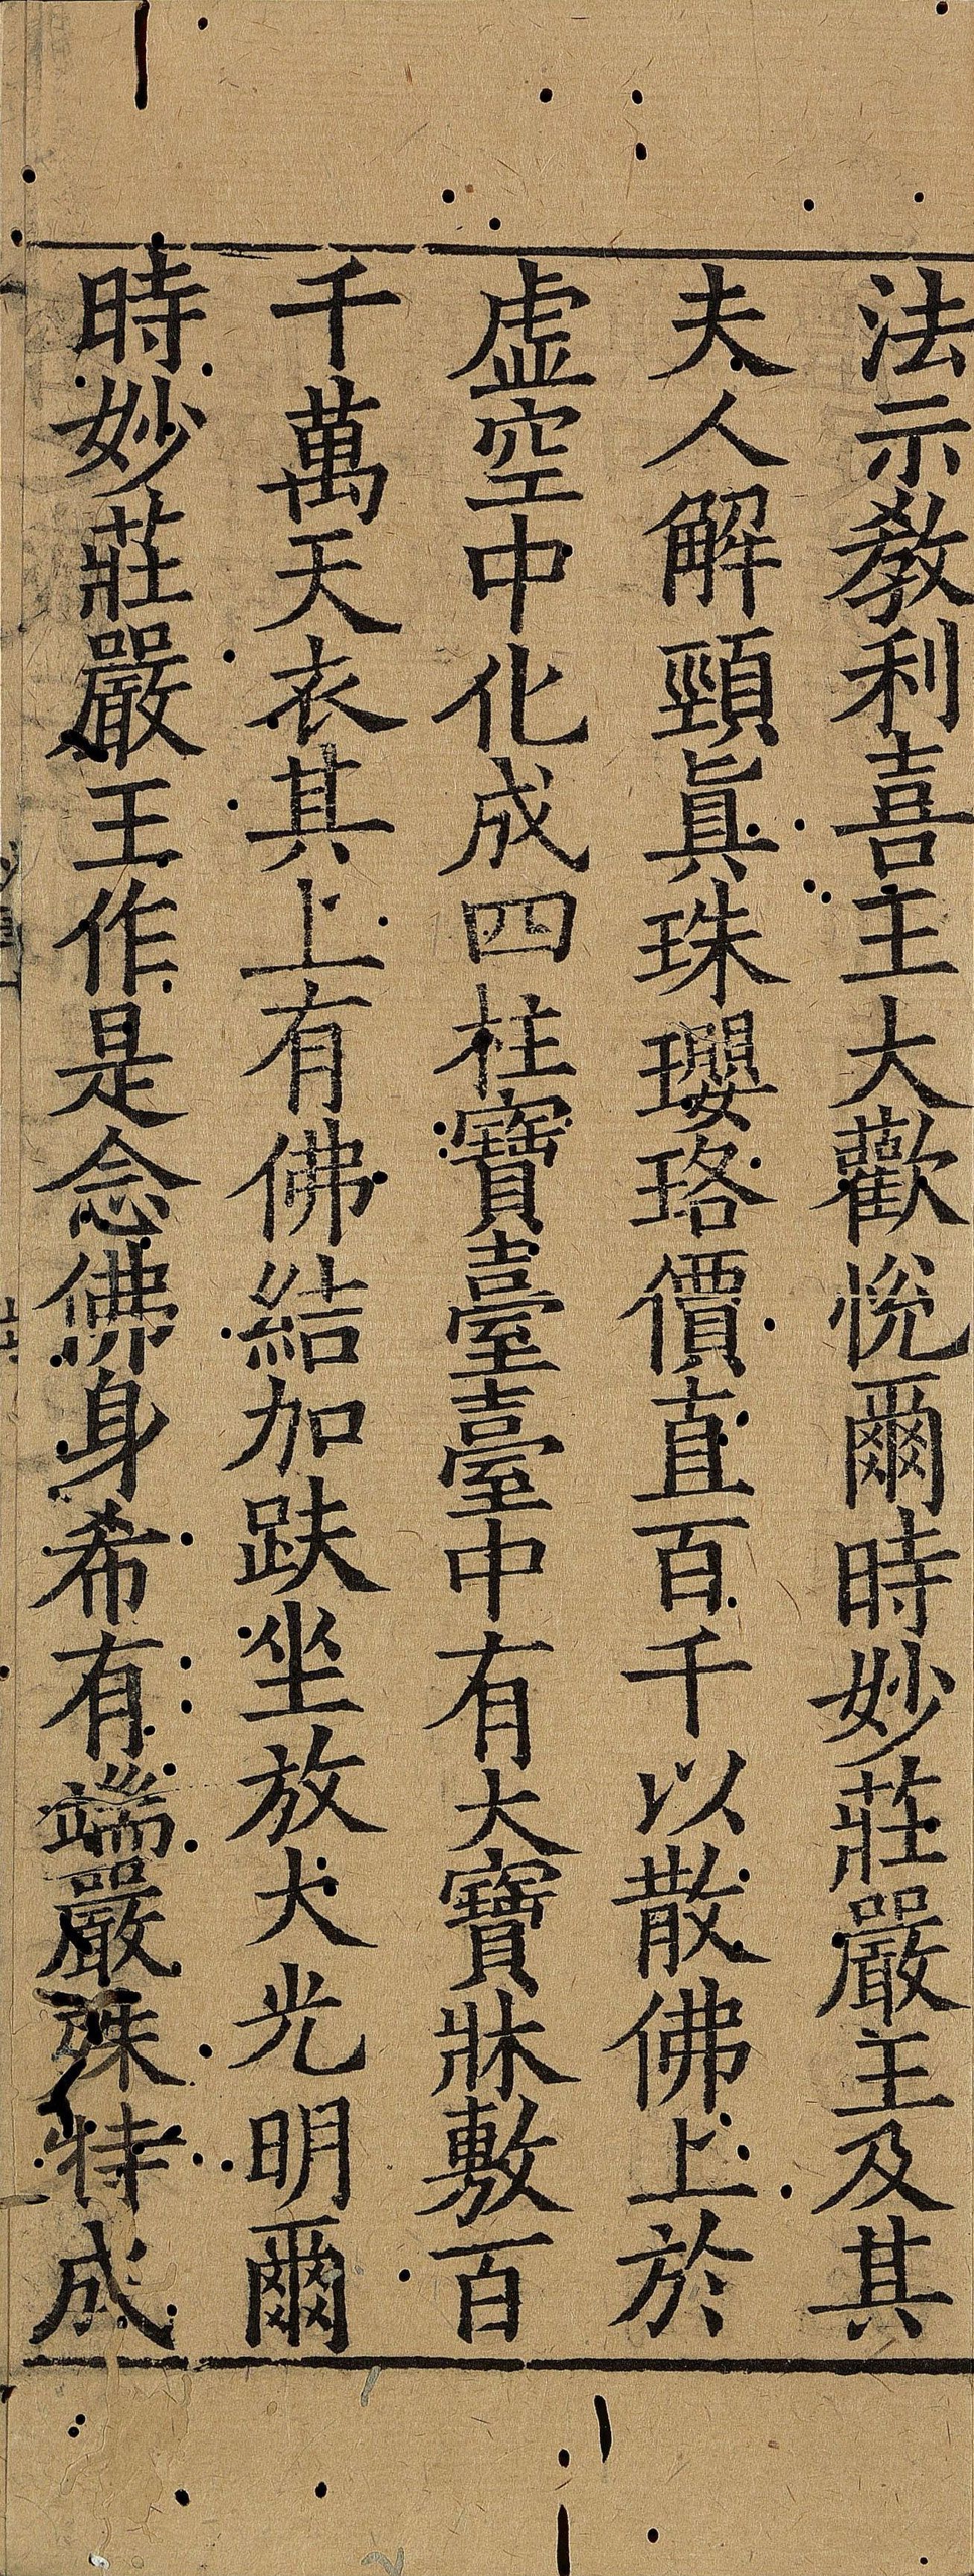 法示教利喜王大歡悅爾時妙莊嚴王及其
夫人解頸眞珠瓔珞價直百千以散佛上於
虛空中化成四柱寶臺臺中有大寶牀敷百
千萬天衣其上有佛結加趺坐放大光明爾
時妙莊嚴王作是念佛身希有端嚴殊特成